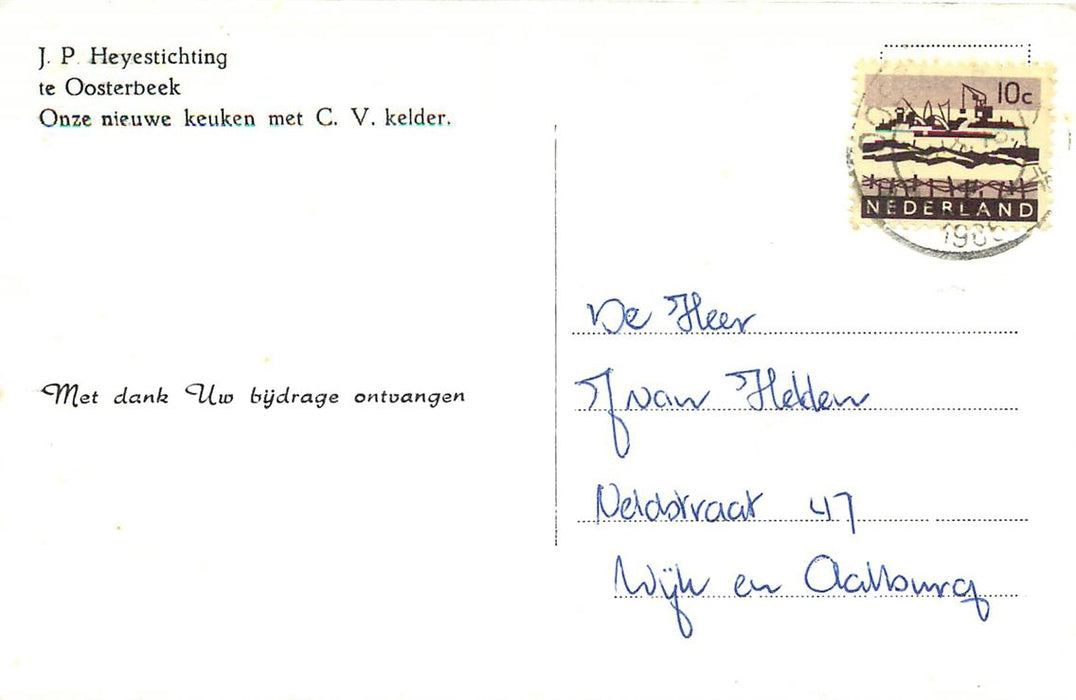 J. P. Heyestichting
te Oosterbeek
Onze nieuwe keuken met C. V. kelder.
Met dank Uw bijdrage ontvangen
10c
NEDERLAND
De Heer
J van Helden
Veldstraat 47
Wijk en Aalburg